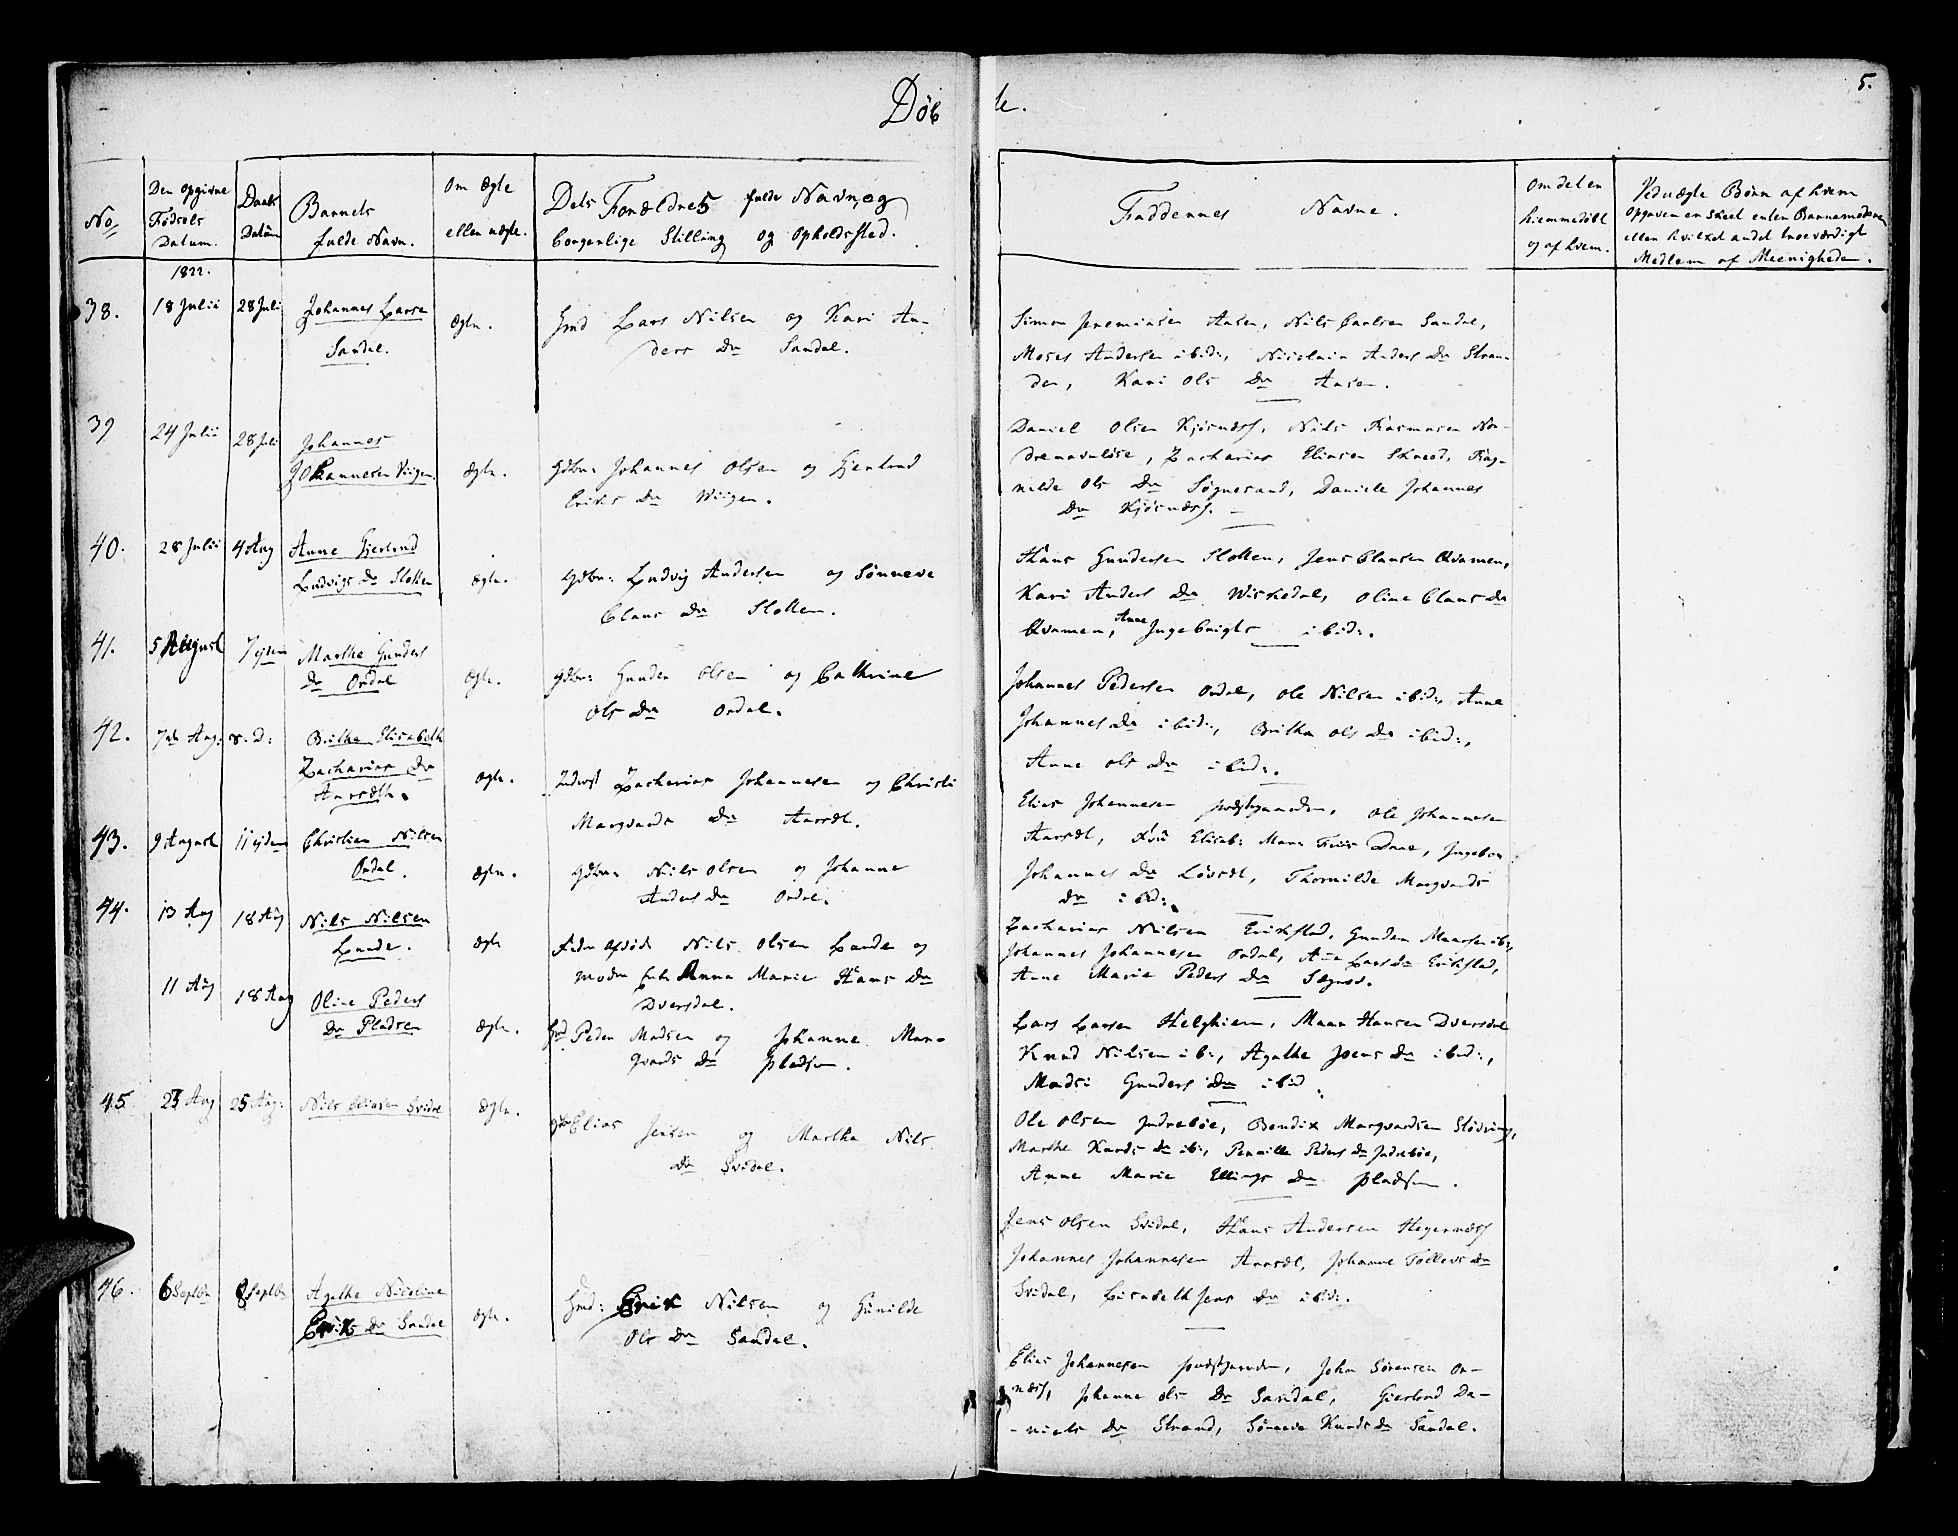 Døbte.
5.
No
Den opgivne
Fødsels
Datum.
Daabs
Datum
Barnets
fulde Navn.
Om Ægte
eller uægte.
Dets Forældres fulde Navn, og
borgerlige Stilling og Opholdssted.
Faddernes Navne.
Om det er
hiemmedøbt
og af hvem.
Ved uægte Børn af hvem
Opgaven er skeet enten Barnemoderen
eller hvilket andet troeværdigt
Medlem af Meenigheden.
1822.
38. 18 Julii 28 Juli Johannes Larsen
Sandal.
Ægte.
Hmd Lars Nilsen og Kari An-
ders Dr Sandal.
Simon Jeremiasen Aasen, Nils Carlsen Sandal,
Moses Andersen ibid:, Nicolaia Anders Dr Stran-
den, Kari Ols Dr Aasen.
39 24 Julii 28 Juli Johannes
Johannesen Viigen.
Ægte.
Gdbr: Johannes Olsen og Gjertrud
Eriks Dr Wiigen.
Daniel Olsen Kjørnæss, Nils Rasmusen No-
Zacharias Eliasen Skreed, Rag-
nilde Ols Dr Søgnesand, Daniele Johannes
Dr Kjørnæss.
40. 28 Julii 4 Aug Anne Gjertrud
Ludvigs Dr Slotten
Ægte.
Gdbr: Ludvig Andersen og Sønneve
Claus Dr Slotten.
Hans Gundersen Slotten, Jens Clausen Kvamen,
Kari Anders Dr Wiskedal, Oline Claus Dr
Kvamen, Anne Ingebrigts ibid:.
41. 5 August 7 ejsdem Marthe Gunders
Dr Ordal
Ægte.
Gdbr: Gunder Olsen og Cathrine
Ols Dr Ordal.
Johannes Pedersen Ordal, Ole Nilsen ibid:, Anne
Johannes Dr ibid:, Brithe Ols Dr ibid:,
Anne Ols Dr ibid:.
42. 7de Aug: 8. D: Brithe Elisabeth
Zacharias Dr
Aarsæth.
Ægte.
Inderst Zacharias Johannesen og Christi
Marqvards Dr Aarsæt.
Elias Johannesen præstgaarden, Ole Johannesen
Aarsæt, Elisab: Maria Friis Daae, Ingebor
Johannes Dr Løvsæt, Thornilde Marqvards
Dr ibid:.
43. 9 August 11 ejsdem Christian Nilsen
Ordal.
Ægte.
Gdbr: Nils Olsen og Johanne
Anders Dr Ordal.
Zacharias Nilsen Erikstad, Gunder Maarsen ib:,
Johannes Johannesen Ordal, Ane Lars Dr Erikstad,
Anne Marie Peders Dr Sægnes.
44. 13 Aug 18 Aug Nils Nilsen
Lunde.
Ægte
Fader afdøde Nils Olsen Lunde og
Moder Enke Anna Marie Hans Dr
Dversdal.
Lars Larsen Helghiem, Maar Hansen Dversdal
Knud Nilsen ib:, Agathe Jens Dr ibid:,
Madsi Gunders Dr ibid.
11 Aug 18 Aug Oline Peders
Dr Pladsen
Ægte.
Hmd Peder Madsen og Johanne Mar-
qvards Dr Pladsen.
Ole Olsen Indrebøe, Bendix Marqvardsen Slødving,
Marthe Knuds Dr ib:, Pernille Peders Dr Indrebøe,
Anne Marie Ellings Dr Pladsen.
45. 23 Aug 25 Aug: Nils Eliasen Svidal
Ægte.
Gdbr Elias Jensen og Martha Nils
Dr Svidal.
Jens Olsen Svidal, Hans Andersen Hegernæss
Johannes Johannesen Aarsæt, Johanne Tollevs Dr
Svidal, Lisabeth Jens Dr ibid:.
46. 6 Septbr 8 Septbr Agathe Nicoline
Eriks Dr Sandal
Ægte.
Hmd: Erik Nilsen og Gunilde
Ols Dr Sandal.
Elias Johannesen præstgaarden, John Sørensen Or-
næss, Johanne Ols Dr Sandal, Gjertrud Da-
niels Dr Strand, Sønneva Knuds Dr Sandal.